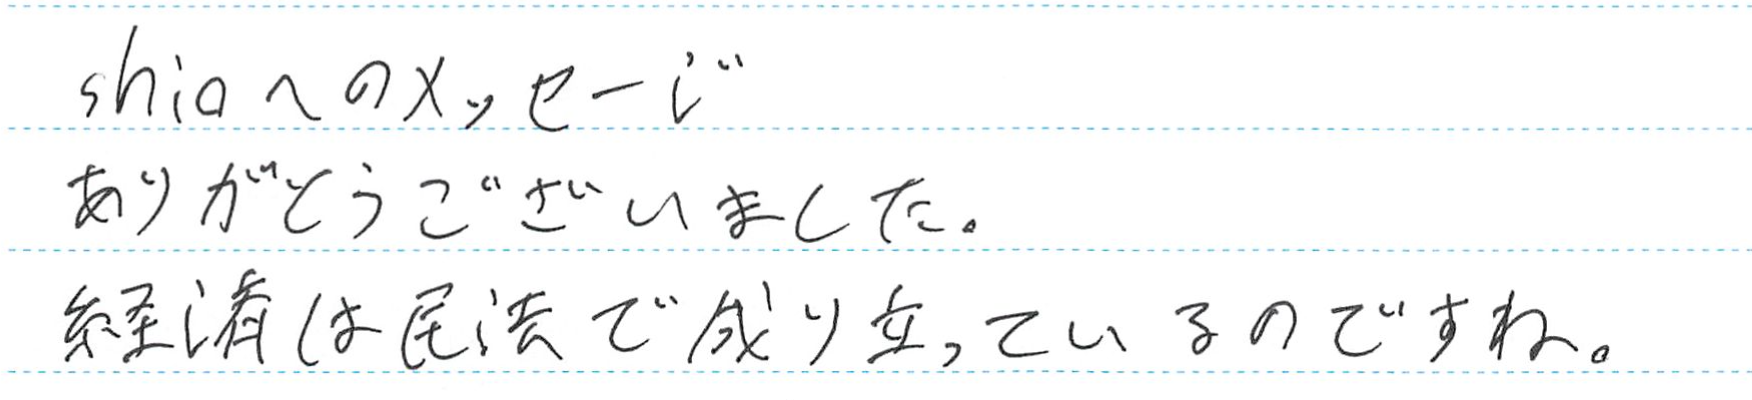 shioへのメッセージ
ありがとうございました。
経済は民法で成り立っているのですね。